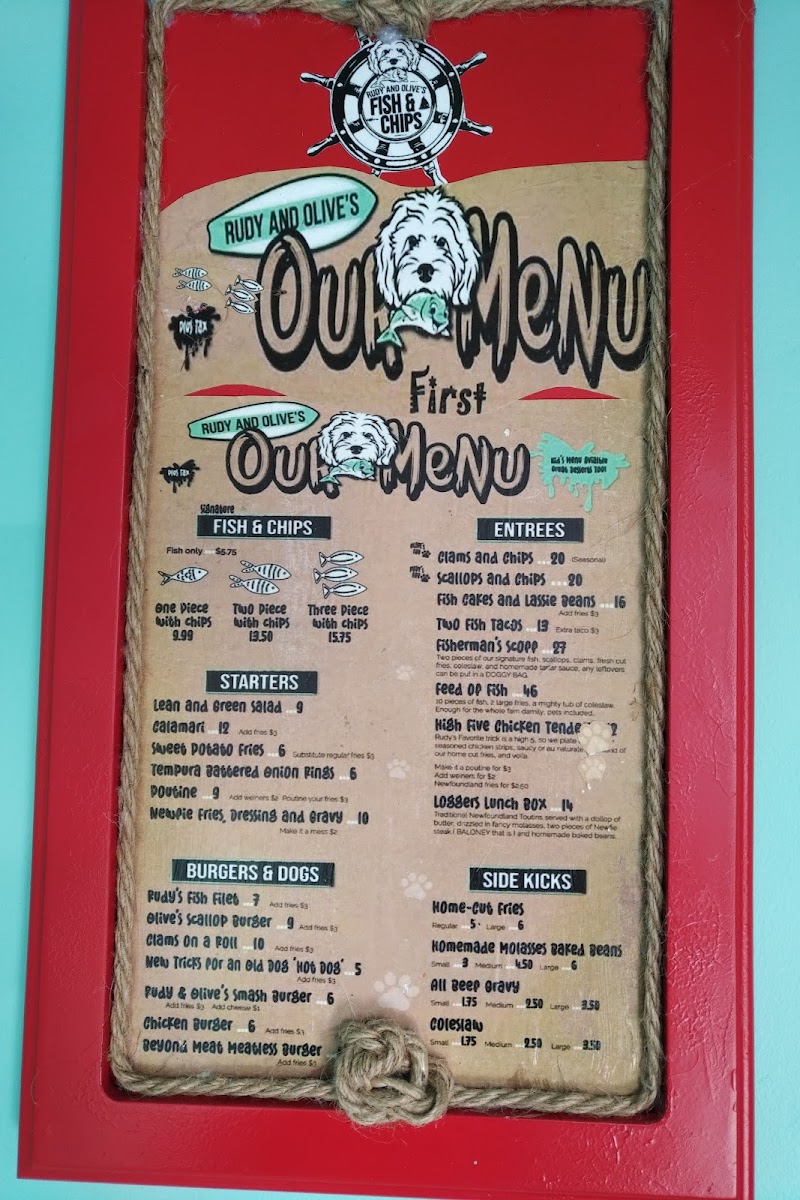 RUDY AND OLIVE'S
FISH &
CHIPS
RUDY AND OLIVE'S
OUR MENU
Plus Tax
First
RUDY AND OLIVE'S
OUR MENU
Plus Tax
Kid's Menu Available
Great Desserts Too!
Signature
FISH & CHIPS
Fish only ... $5.75
One Piece with chips 9.99
Two Piece with chips 13.50
Three Piece with chips 15.75
STARTERS
Lean and Green Salad ...9
Calamari ...12 Add fries $3
Sweet Potato Fries ...6 Substitute regular fries $3
Tempura Battered Onion Rings ...6
Poutine ...9 Add weiners $2 Poutine your fries $3
Newfie Fries, Dressing and Gravy ...10
Make it a mess $2
BURGERS & DOGS
Rudy's Fish Filet ...7 Add fries $3
Olive's Scallop Burger ...9 Add fries $3
Clams on a Roll ...10 Add fries $3
New Tricks for an Old Dog 'Hot Dog' ..5
Add fries $3
Rudy & Olive's Smash Burger ...6
Add fries $3 Add cheese $1
Chicken Burger ...6 Add fries $3
Beyond Meat Meatless Burger
Add fries $3
ENTREES
Clams and Chips ...20 (Seasonal)
Scallops and Chips ...20
Fish Cakes and Lassie Beans ...16
Add fries $3
Two Fish Tacos ...13 Extra taco $3
Fisherman's Scoff ...27
Two pieces of our signature fish, scallops, clams, fresh cut
fries, coleslaw, and homemade tartar sauce, any leftovers
can be put in a DOGGY BAG.
Feed of Fish ...46
10 pieces of fish, 2 large fries, a mighty tub of coleslaw.
Enough for the whole fam damily, pets included.
High Five Chicken Tende
Rudy's Favorite trick is a high 5, so we plate
seasoned chicken strips, saucy or au naturale, of
our home cut fries, and voila.
Make it a poutine for $3
Add weiners for $2
Newfoundland fries for $2.50
Loggers Lunch Box ...14
Traditional Newfoundland Toutins served with a dollop of
butter, drizzled in fancy molasses, two pieces of Newfie
steak ( BALONEY that is ) and homemade baked beans.
SIDE KICKS
Home-Cut Fries
Regular ...5 Large ...6
Homemade Molasses Baked Beans
Small ...3 Medium ...4.50 Large ...6
All Beef Gravy
Small ...1.75 Medium ...2.50 Large ...3.50
Coleslaw
Small ...1.75 Medium ...2.50 Large ...3.50